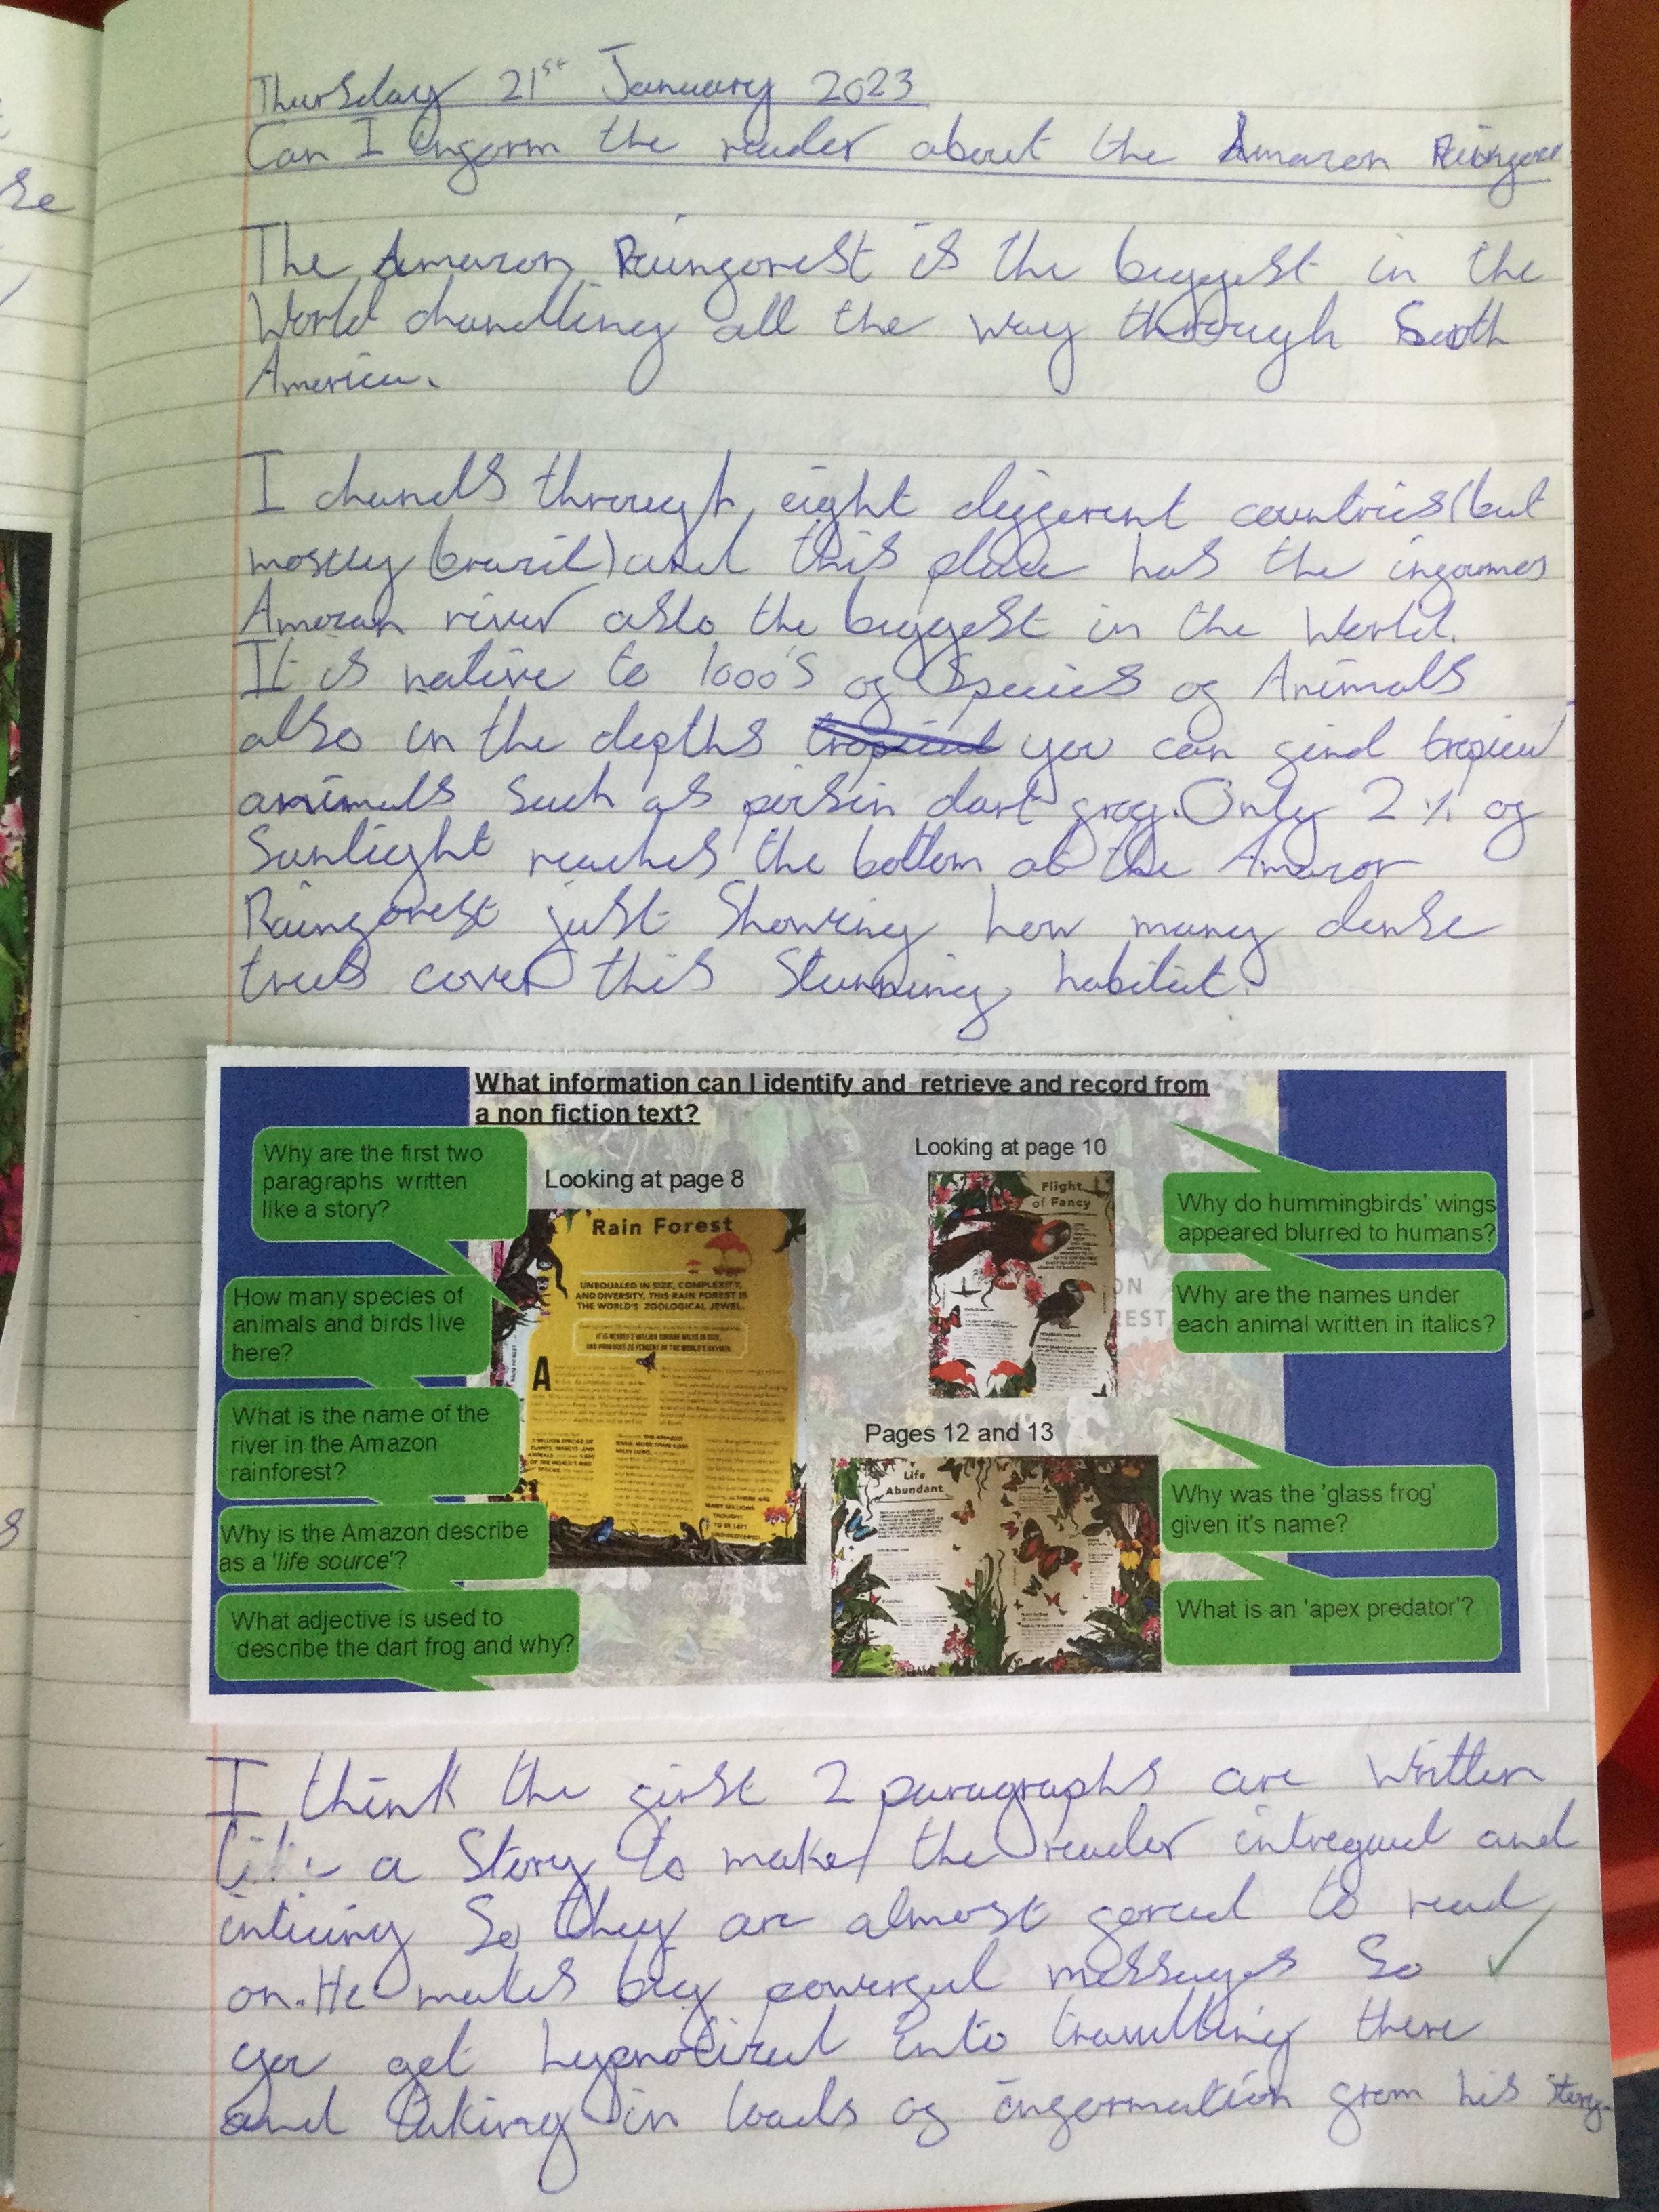 Thursday 21st January 2023
Can I inform the reader about the Amazon
The Amazon Rainforest is the biggest in the
World chanelling all the way through South
America.
I chanels through eight different countries (but
mostly brazil) and this place has the infamos
Amozan river aslo the biggest in the World.
It is native to 1000's of Species of Animals
also in the depths tropical you can find tropical
animals such as poisin dart frog. Only 2% of
Sunlight reaches the bottom ob the Amazon
Rainforest just Showing how many dense
trees cover this Stunning habitat.
What information can I identify and retrieve and record from
a non fiction text?
Why are the first two
paragraphs written
like a story?
How many species of
animals and birds live
here?
What is the name of the
river in the Amazon
rainforest?
Why is the Amazon describe
as a 'life source'?
What adjective is used to
describe the dart frog and why?
Looking at page 8
Rain Forest
UNEQUALED IN SIZE, COMPLEXITY,
AND DIVERSITY, THIS RAIN FOREST IS
THE WORLD'S ZOOLOGICAL JEWEL.
IT IS NEARLY 2 MILLION SQUARE MILES IN SIZE,
AND PRODUCES 20 PERCENT OF THE WORLD'S OXYGEN.
A
Looking at page 10
Flight
of Fancy
Pages 12 and 13
Life
Abundant
ON
REST
Why do hummingbirds' wings
appeared blurred to humans?
Why are the names under
each animal written in italics?
Why was the 'glass frog'
given it's name?
What is an 'apex predator'?
I think the first 2 paragraphs are Written
a Story to make the reader intregued and
inticing So they are almost forced to read
on. He makes big powerful messages So
you get hypnotized into travelling there
and taking in loads of information from his story.